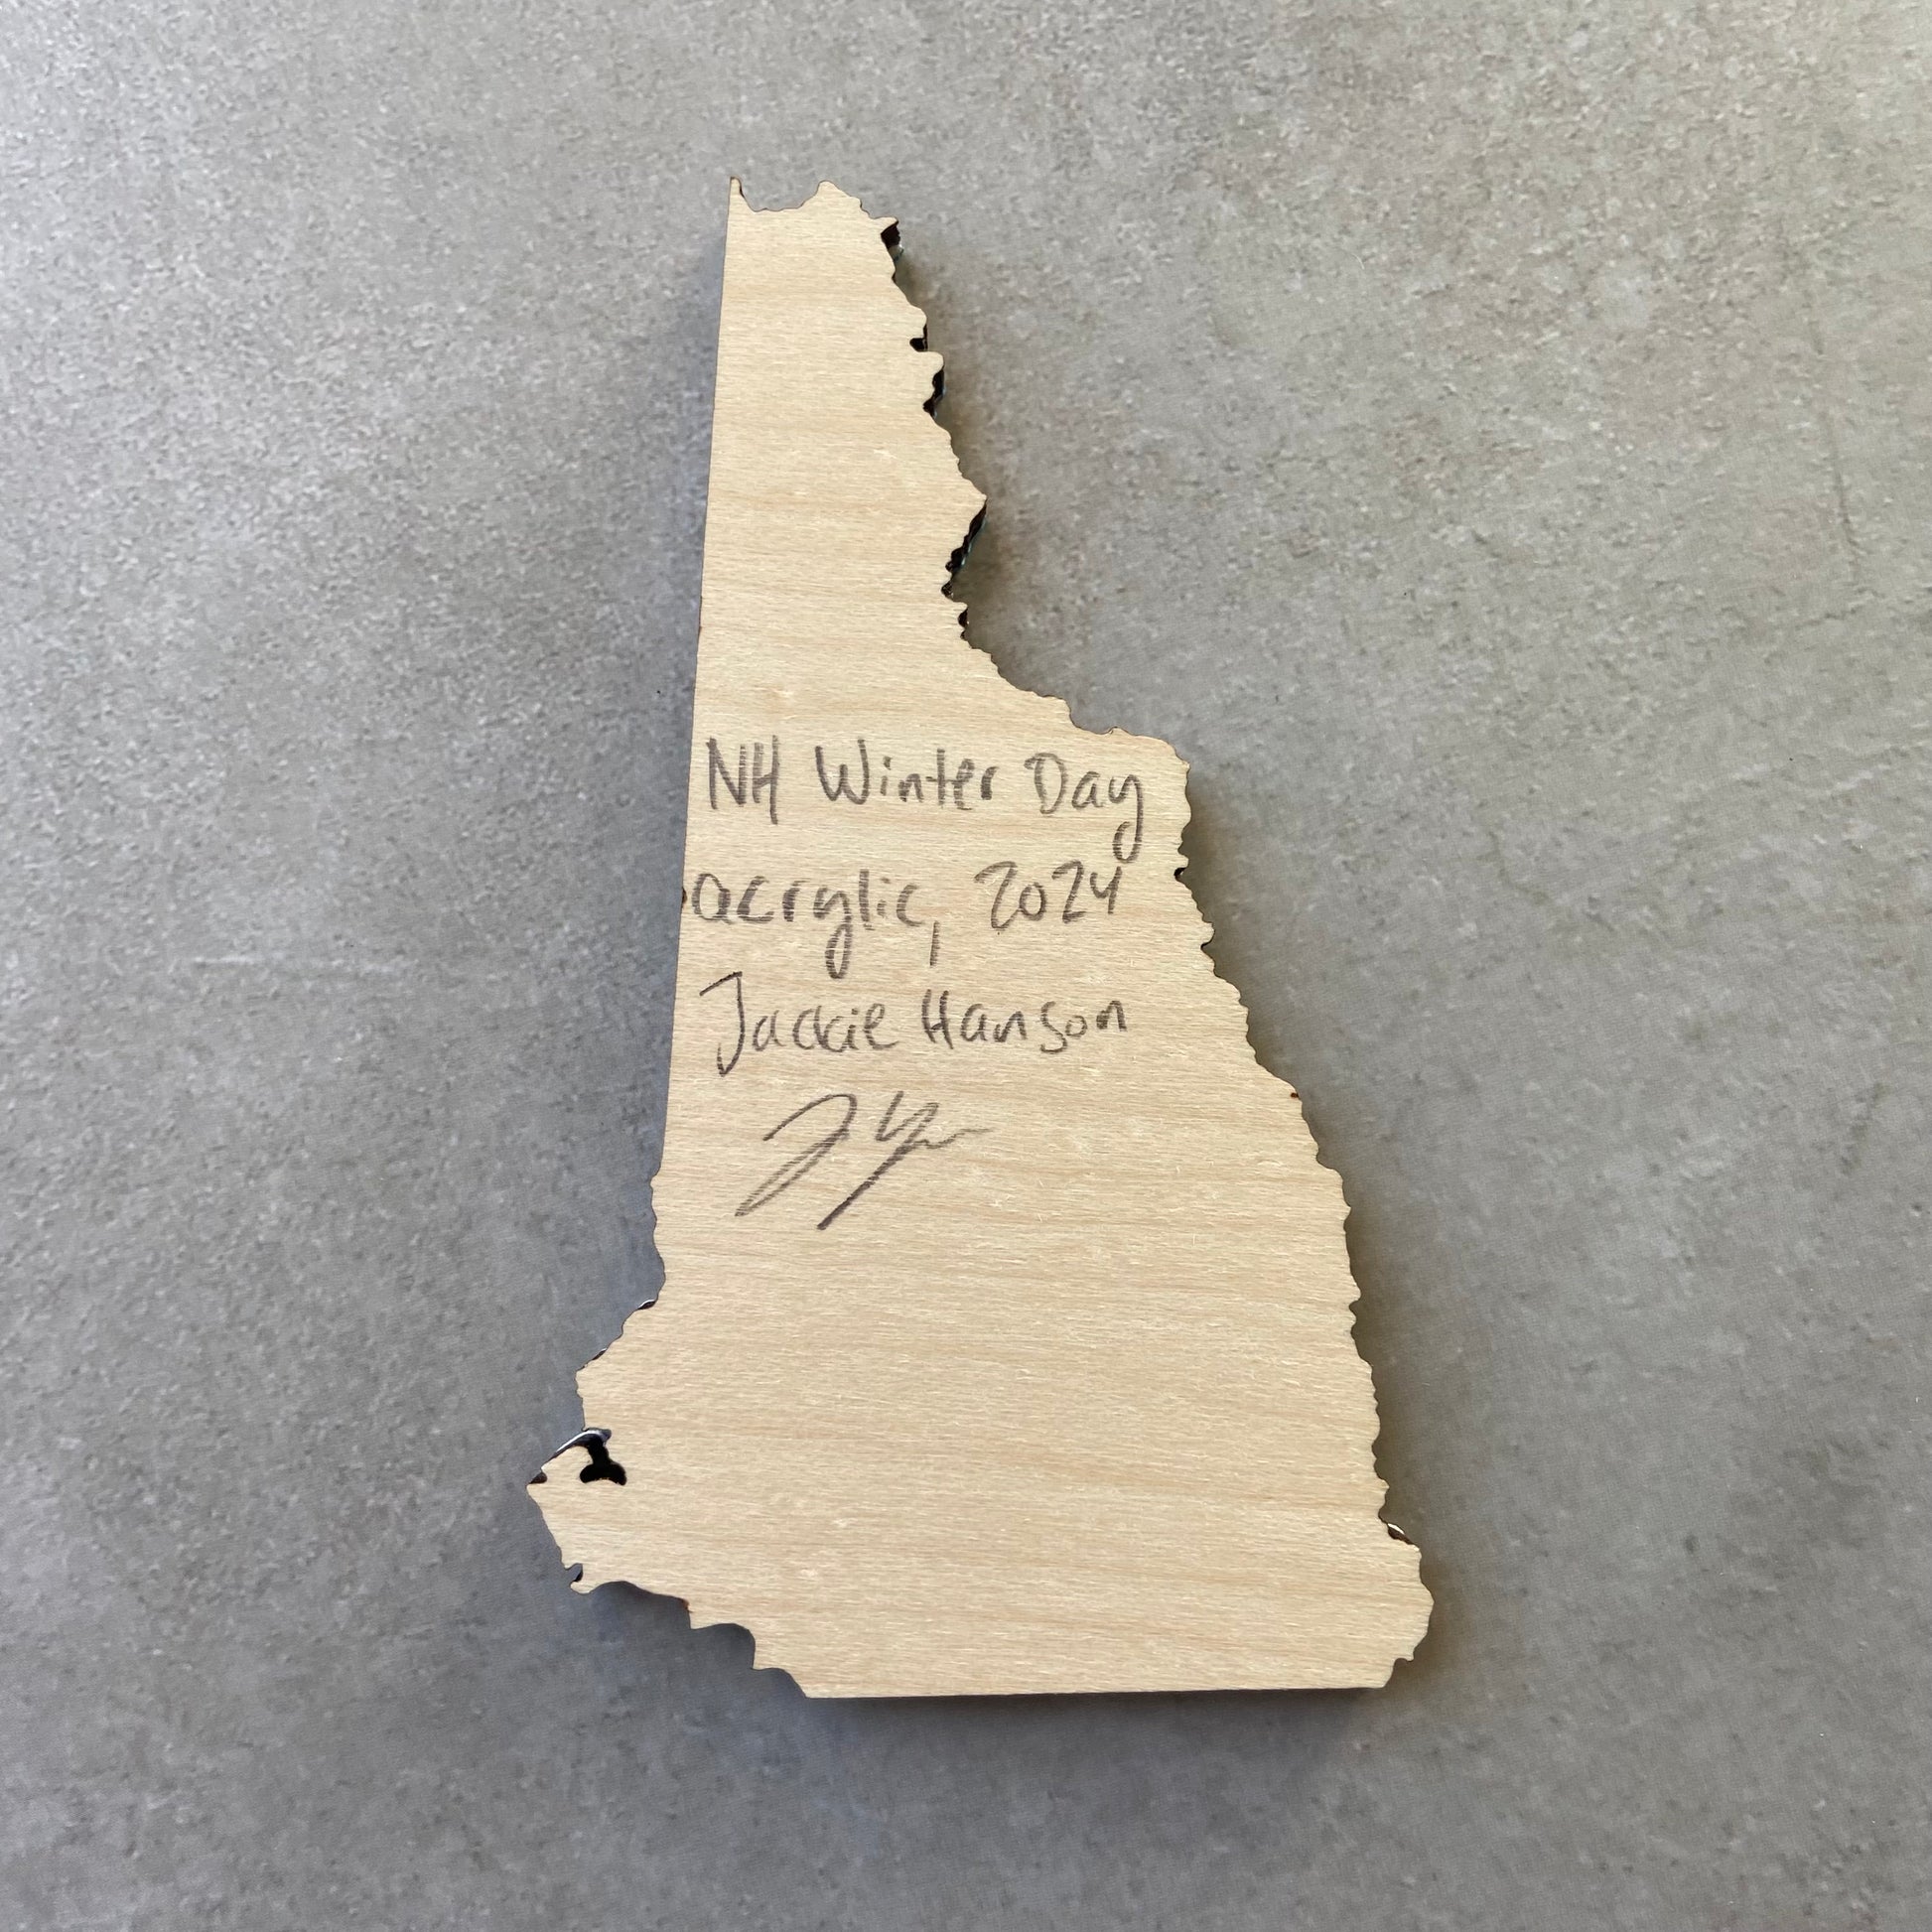 NH Winter Day
acrylic, 2024
Jackie Hanson